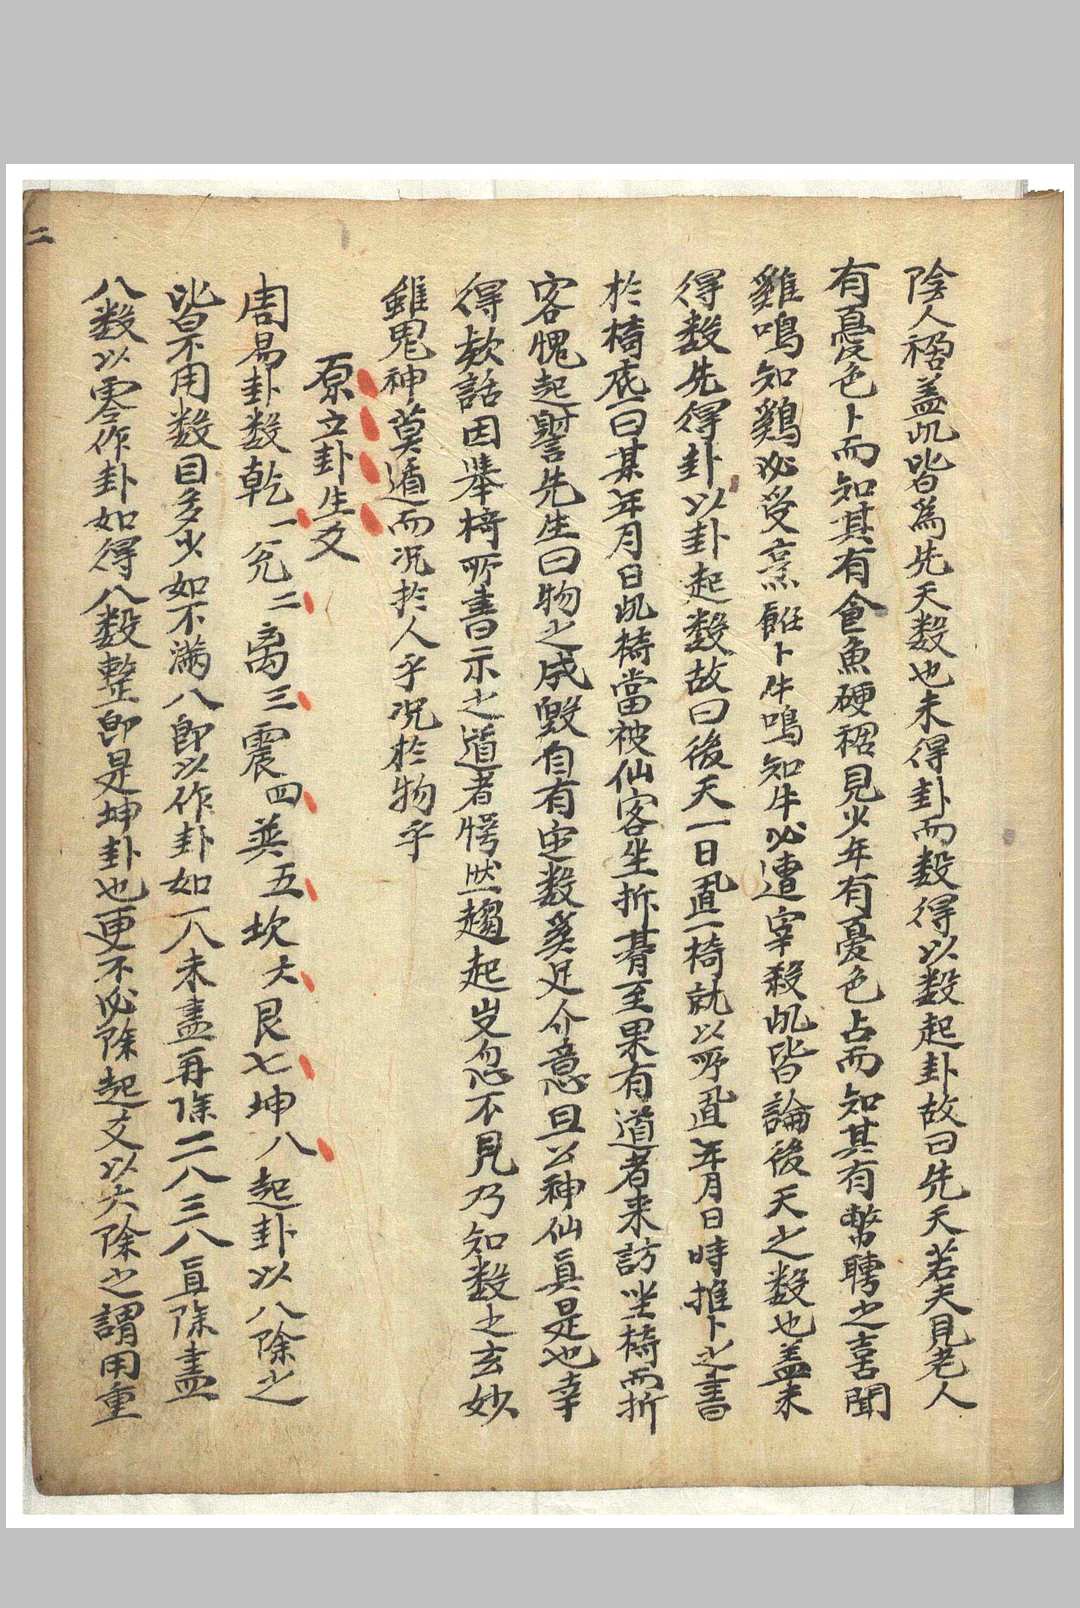 陰人禍盖此皆爲先天数也未得卦而数得以数起卦故曰先天若夫見老人
有憂色卜而知其有食魚硬禍見少年有憂色占而知其有幣聘之喜聞
雞鳴知鷄必受烹飪卜牛鳴知牛必遭宰殺此皆論後天之数也盖未
得数先得卦以卦起数故曰後天一日置一椅就以所置年月日時推卜之書
於椅底曰某年月日此椅當被仙客坐折碁至果有道者来訪坐椅而折
客愧起謦先生曰物之成毀自有定数奚足介意且公神仙眞是也幸
得欵話因舉椅所書示之道者愕然趨起叟忽不見乃知数之玄妙
雖鬼神莫遁而况於人乎况於物乎
原立卦生爻
周易卦数乾一兊二离三震四巽五坎六艮七坤八起卦以八除之
皆不用数目多少如不滿八即以作卦如一八未盡再除二八三八直除盡
八数以零作卦如得八数整即是坤卦也更不必除起爻以六除之謂用重
二